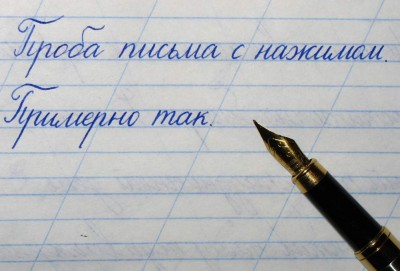 Проба письма с нажимом.
Примерно так.